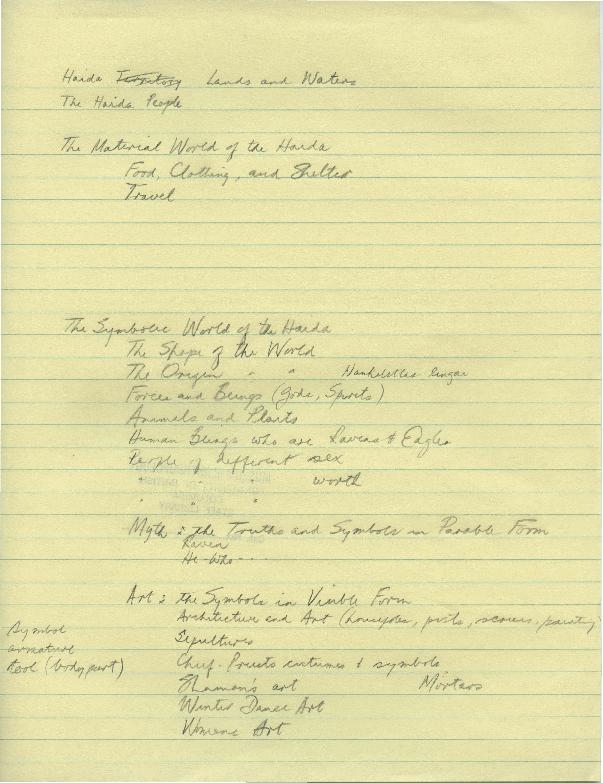 Haida Territory Lands and Waters
The Haida People
The Material World of the Haida
Food, Clothing, and Shelter
Travel
The Symbolic World of the Haida
The Shape of the World
The Origin " "
Forces and Beings (gods, Spirits)
Animals and Plants
Human Beings who are Ravens & Eagles
People of different sex
" " " worth
Myth: the Truths and Symbols in Parable Form
Raven
He-who- - - -
Art: the Symbols in Visible Form
Architecture and Art (housepoles, posts, screens, painting
Sepultures
Chief-Priests costumes & symbols
Shaman's art Mortars
Winter Dance Art
Womens Art
Symbol
armature
tool (body part)